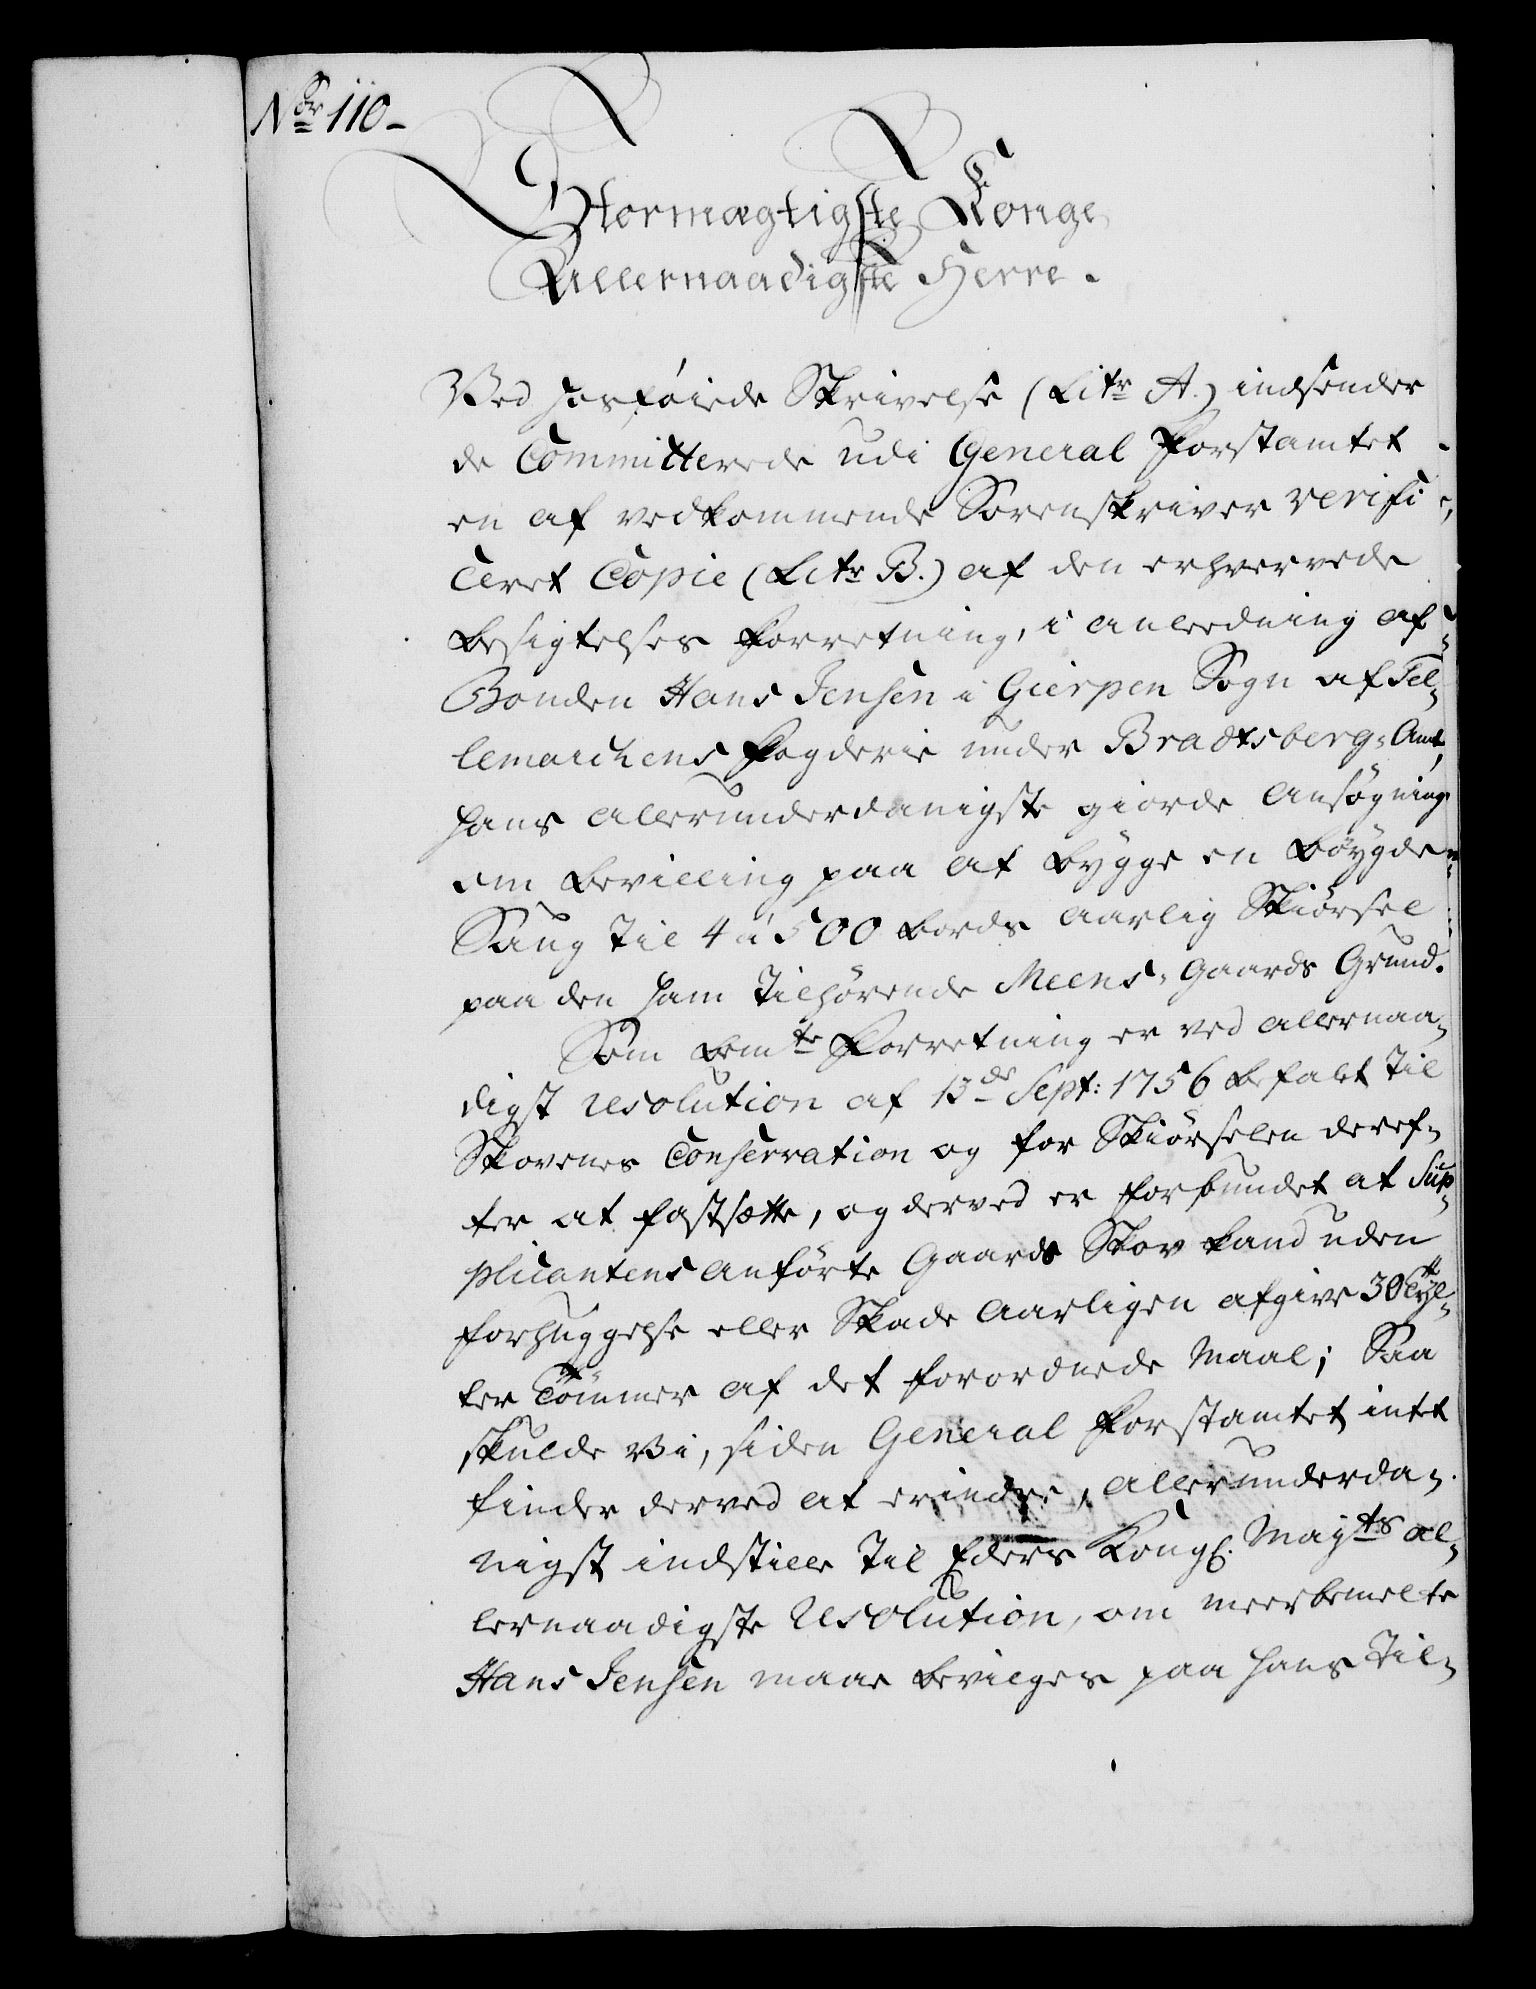 Nor 110-
Stormægtigste Konge
Allernaadigste Herre.
Ved hosføiede Skrivelse (Litr A.) indsender
de Committerede udi General Forstamtet
en af vedkommende Sorenskriver verifi-
ceret Copie (Litr B.) af den erhvervede
besigtelses Forretning, i anleedning af
Bonden Hans Jensen i Gierpen Sogn af Tel-
lemarchens Fogderie under Bradtsberg-Amt,
hans allerunderdanigste giorde ansøgning
om bevilling paa at bygge en bøygde
Saug til 4 a 500 bords aarlig Skiørsel
paa den ham tilhørende Meens-Gaards Grund.
Som bemte Forretning er ved allernaa-
digst resolution af 13de Sept: 1756 befalet til
Skovenes Conservation og for Skiørselen deref-
ter at fastsætte, og derved er forbundet at Sup-
plicantens anførte Gaards Skov kand uden
forhuggelse eller Skade aarligen afgive 30 tyl-
ter Tömmer af det forordnede Maal; Saa
skulde Vi, siden General Forstamtet intet
finder derved at erindre, allerunderda-
nigst indstille til Eders Kongl. Mayts al-
lernaadigste Resolution, om meerbemelte
Hans Jensen maae bevilges paa hans til-